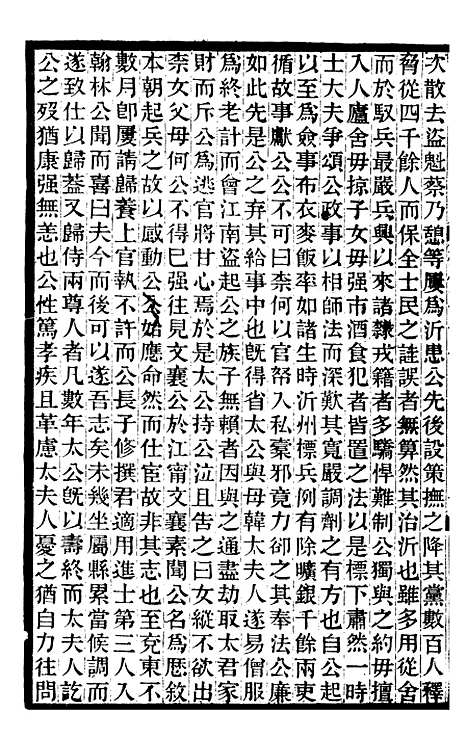 次散去盜魁蔡乃憩等屢爲沂患公先後設策撫之降其黨數百人釋
脅從四千餘人而保全士民之詿誤者無算然其治沂也雖多用從舍
而於馭兵最嚴兵興以來諸隸戎籍者多驕悍難制公獨與之約毋擅
入人廬舍毋掠子女毋强市酒食犯者皆置之法以是標下肅然一時
士大夫爭頌公政事以相師法而深歎其寬嚴調劑之有方也自公起
以至爲僉事布衣麥飯率如諸生時沂州標兵例有除曠銀千餘兩吏
循故事獻公公不可曰柰何以官帑入私橐邪竟力卻之其奉法公廉
如此先是公之弃其給事中也旣得省太公與母韓太夫人遂易僧服
爲終老計而會江南盜起公之族子無賴者因與之通盡劫取太君家
財而斥公爲逃官將甘心焉於是太公持公泣且告之曰女縱不欲出
柰女父母何公不得已强往見文襄公於江甯文襄素聞公名爲歷敘
本朝起兵之故以感動公公始應命然而仕宦故非其志也至兗東不
數月卽屢請歸養上官執不許而公長子修撰君適用進士第三人入
翰林公聞而喜曰夫今而後可以遂吾志矣未幾坐屬縣累當候調而
遂致仕以歸葢又歸侍兩尊人者几數年太公旣以壽終而太夫人訖
公之歿猶康强無恙也公性篤孝疾且革慮太夫人憂之猶自力往問